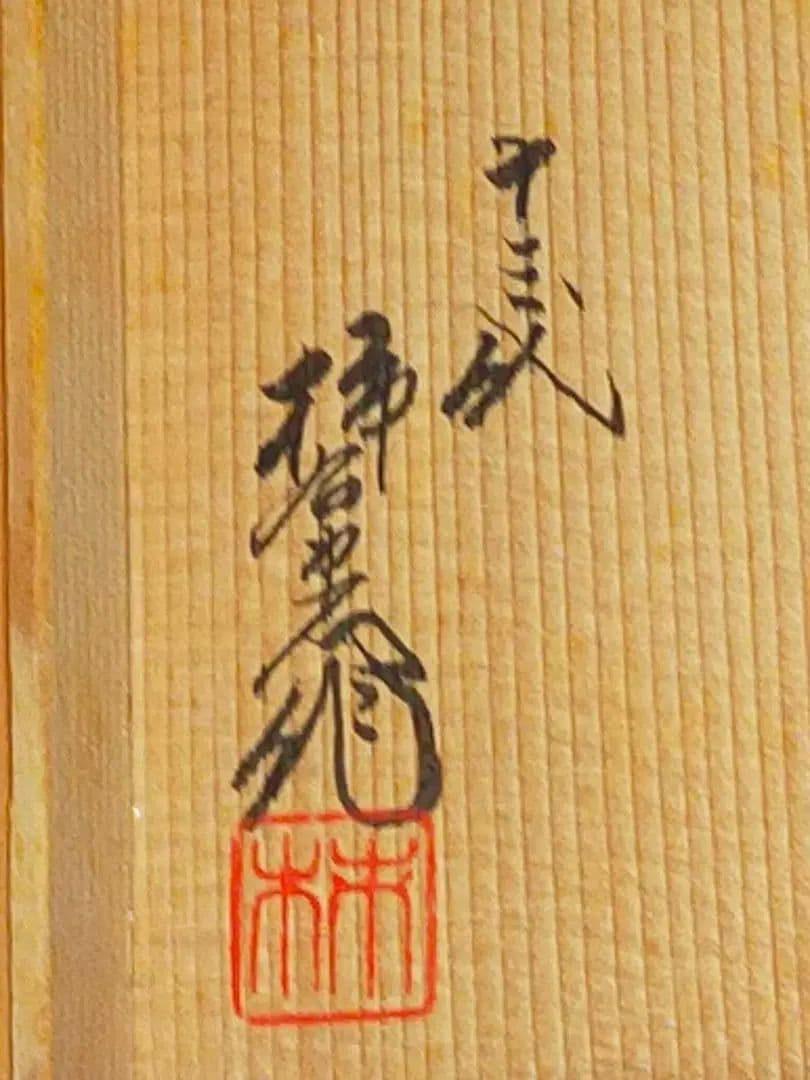 十三代
柿右衛門
柿